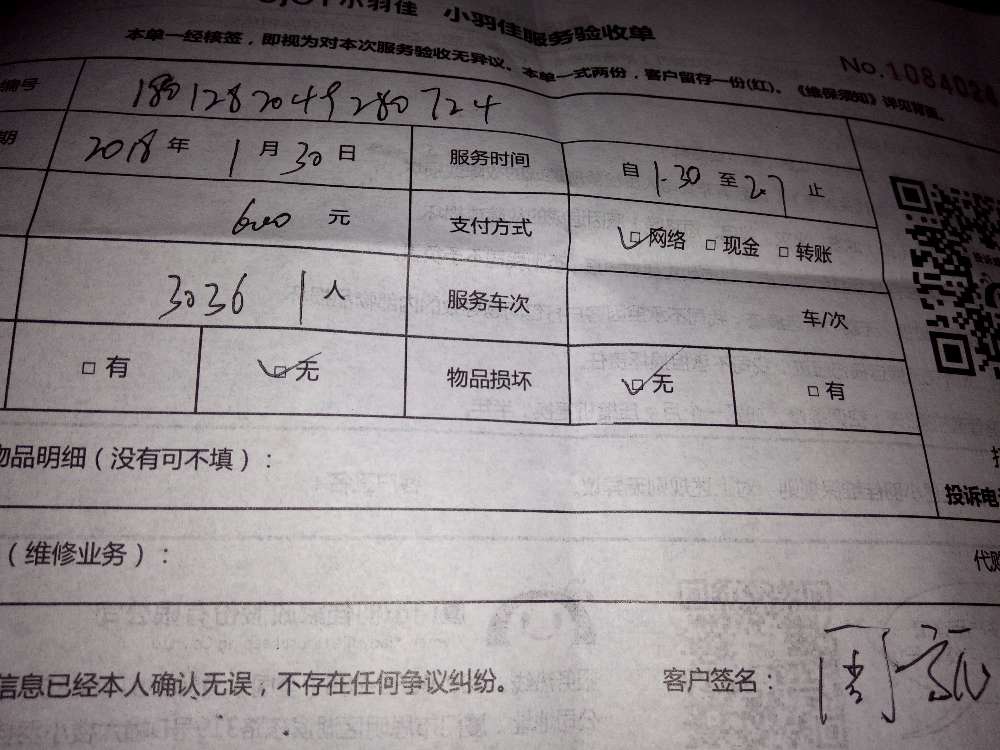 小羽佳 小羽佳服务验收单
本单一经核签，即视为对本次服务验收无异议。本单一式两份，客户留存一份(红)。《维保须知》详见背面。
No.1084024
编号 1801282049280724
期 2018年 1月30日 服务时间 自 1.30 至 2.7 止
600 元 支付方式 □网络 □现金 □转账
3036 1人 服务车次 车/次
□有 □无 物品损坏 □无 □有
物品明细（没有可不填）：
投诉电
（维修业务）：
代购
信息已经本人确认无误，不存在任何争议纠纷。 客户签名：